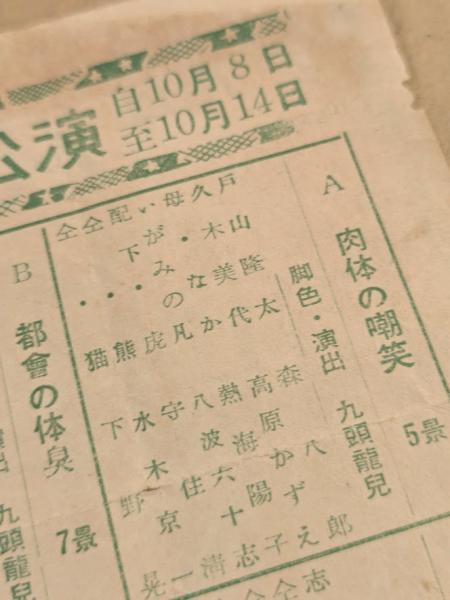 公演
自10月8日
至10月14日
A
肉体の嘲笑 5景
脚色・演出 九頭龍兒
戸山隆太 森八郎
久木美代 高原かずえ
母・なか 熱海陽子
いがみの凡 八波六十志
配下・虎 守住清
仝・熊 水木京一
仝・猫 下野晃
B
都會の体臭 7景
演出 九頭龍兒